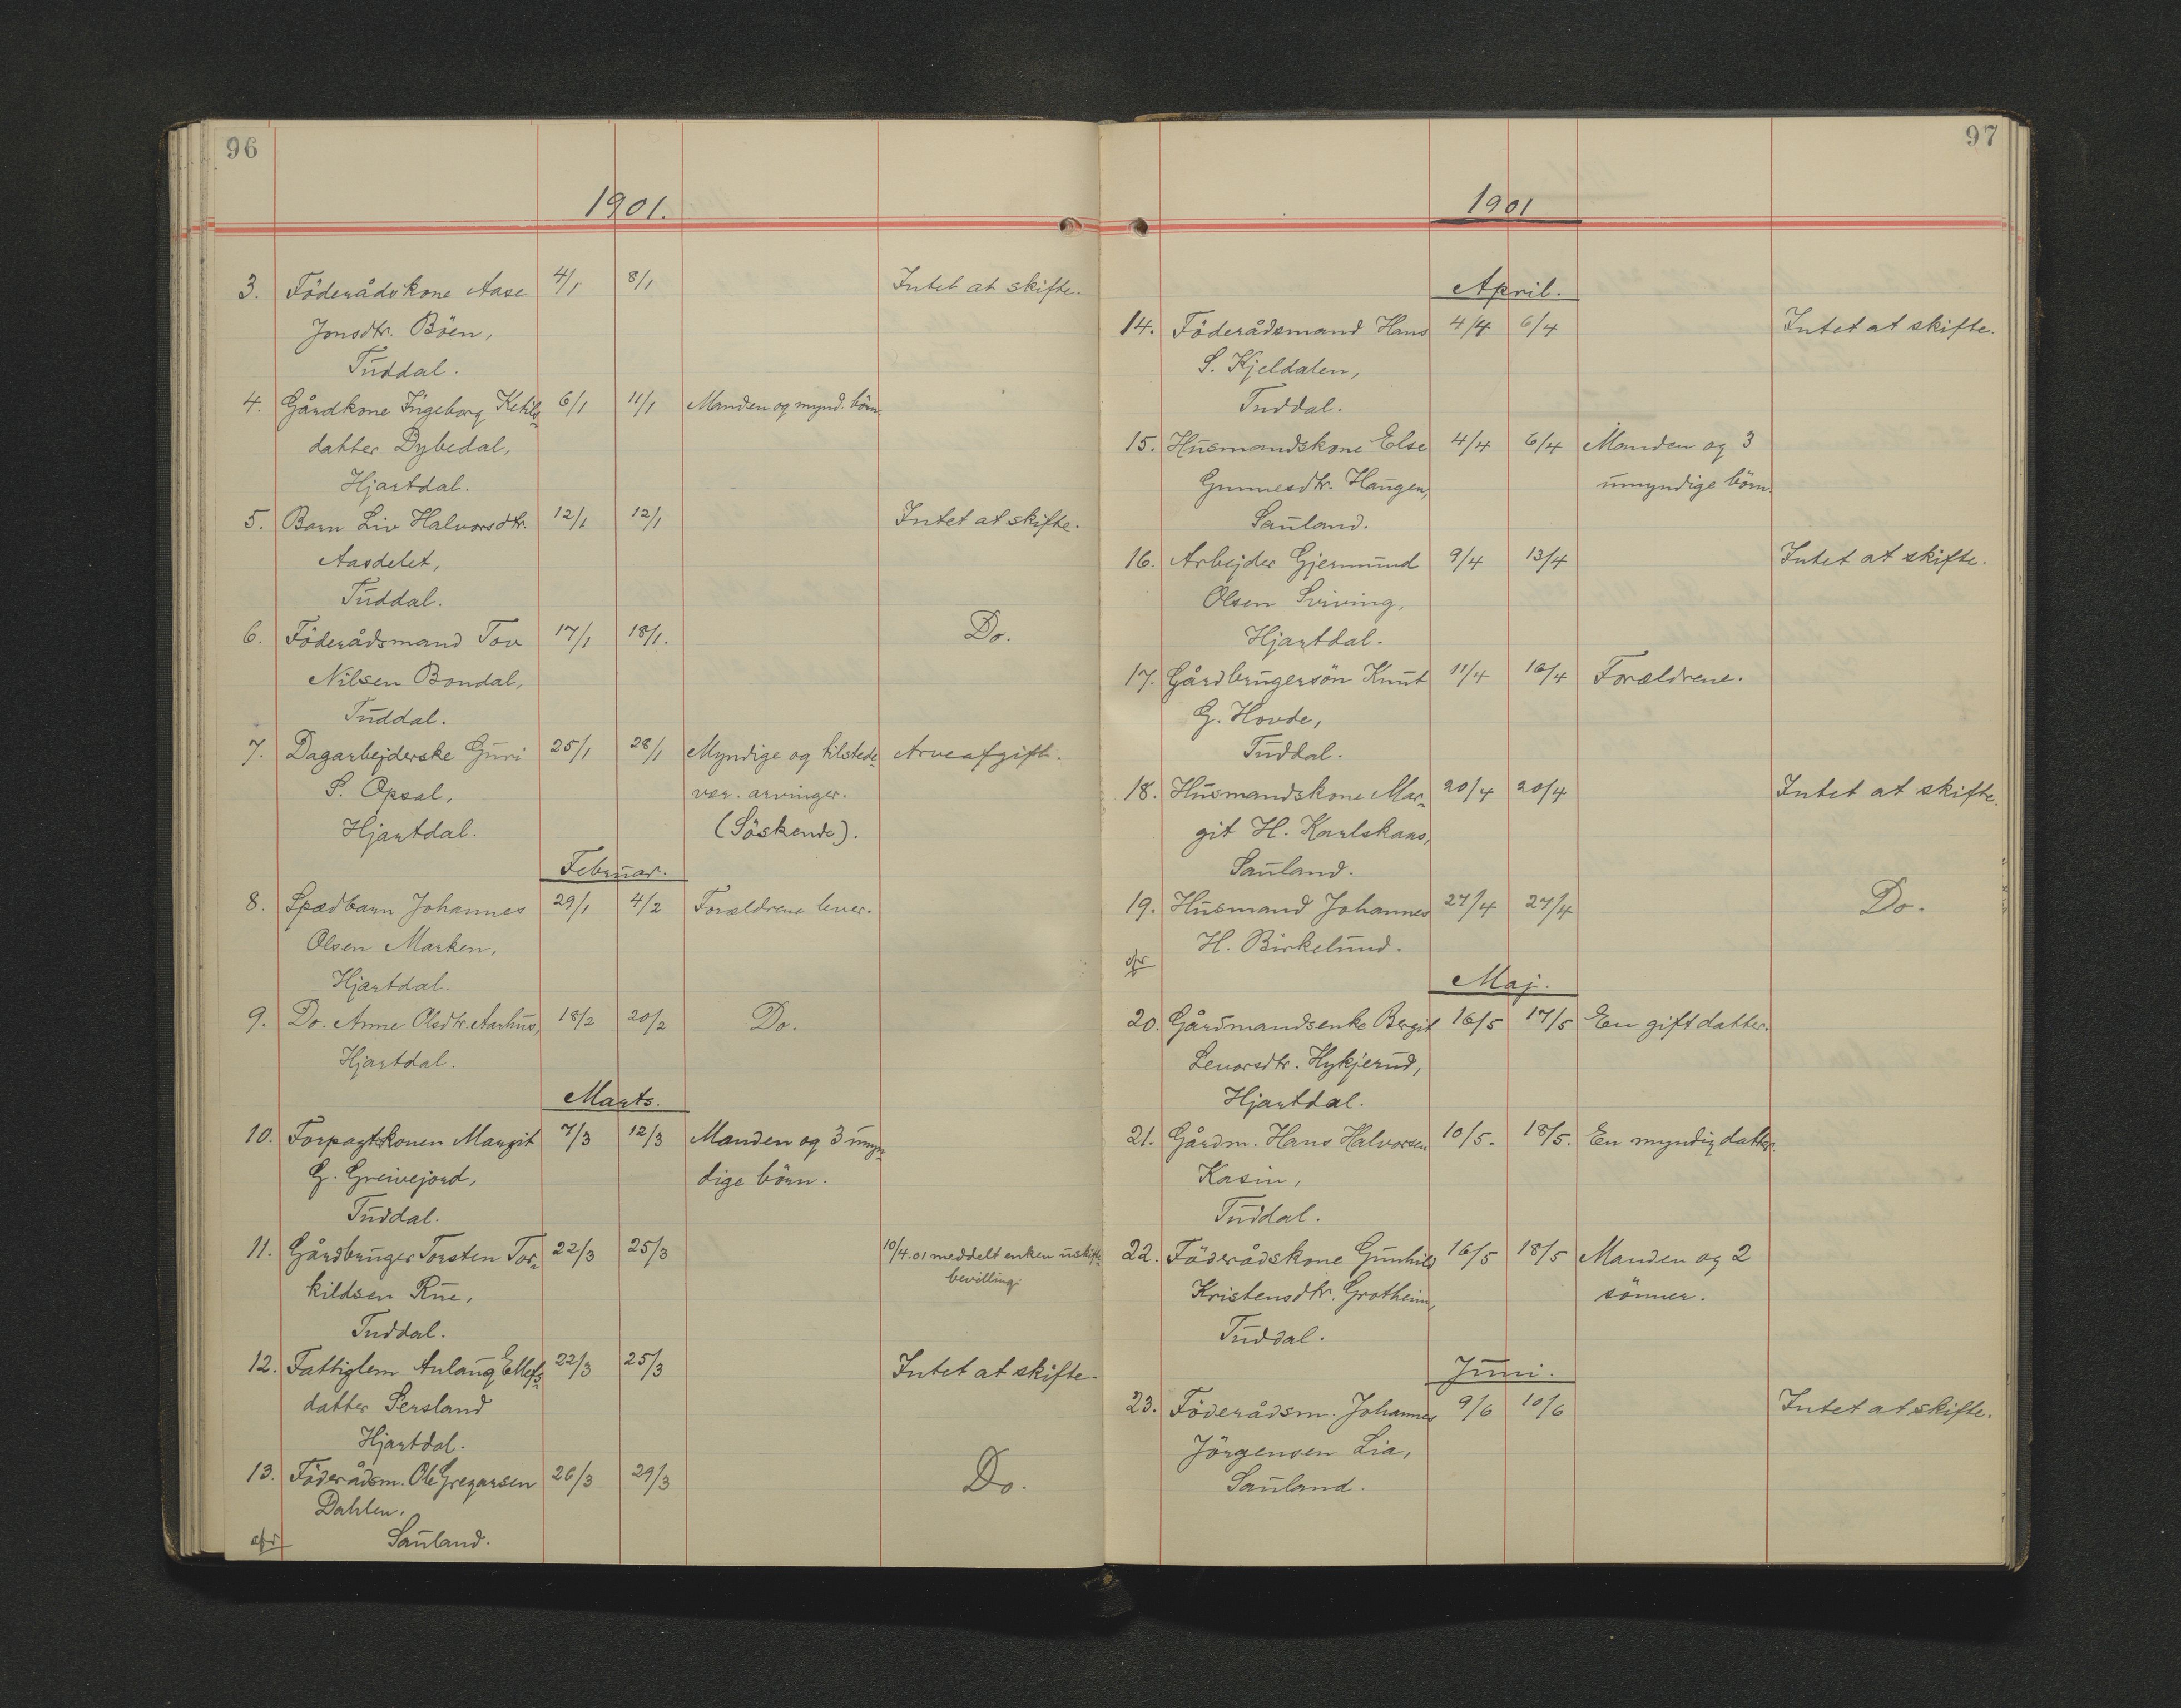 96
1901.
3. Föderådskone Aase 4/1 8/1 Intet at skifte.
Jonsdtr. Böen,
Tuddal.
4. Gårdkone Ingeborg Ketils- 6/1 11/1 Manden og mynd. börn.
datter Dybedal,
Hjartdal.
5. Barn Liv Halvorsdtr. 12/1 12/1 Intet at skifte.
Aasdelet,
Tuddal.
6. Föderådsmand Tov 17/1 18/1. Do.
Nilsen Bondal,
Tuddal.
7. Dagarbejderske Guri 25/1 28/1 Myndige og tilstede- Arveafgift.
S. Opsal, vær. arvinger.
Hjartdal. (Söskende).
Februar.
8. Spædbarn Johannes 29/1 4/2 Forældrene lever.
Olsen Marken,
Hjartdal.
9. Do. Anne Olsdtr. Aarhus, 18/2 20/2 Do.
Hjartdal.
Marts.
10. Forpagtskonen Margit 7/3 12/3 Manden og 3 umyn-
G. Greivejord, dige börn.
Tuddal.
11. Gårdbruger Torsten Tor- 22/3 25/3 10/4.01 meddelt enken uskifte-
kildsen Rue, bevilling.
Tuddal.
12. Fattiglem Aulaug Ellefs- 22/3 25/3 Intet at skifte.
datter Sersland
Hjartdal.
13. Föderådsm. Ole Gregarsen 26/3 29/3 Do.
Dahlen,
Sauland.
97
1901
April.
14. Föderådsmand Hans 4/4 6/4 Intet at skifte.
S. Kjeldalen,
Tuddal.
15. Husmandskone Else 4/4 6/4 Manden og 3
Gunnesdtr. Haugen, umyndige börn.
Sauland.
16. Arbejder Gjermund 9/4 13/4 Intet at skifte.
Olsen Sviving,
Hjartdal.
17. Gårdbrugersön Knut 11/4 16/4 Forældrene.
G. Hovde,
Tuddal.
18. Husmandskone Mar- 20/4 20/4 Intet at skifte.
git H. Karlskaas,
Sauland.
19. Husmand Johannes 27/4 27/4 Do.
H. Birkelund.
Maj.
20. Gårdmandsenke Bergit 16/5 17/5 En gift datter.
Levorsdtr. Hykjerud,
Hjartdal.
21. Gårdm. Hans Halvorsen 10/5. 18/5. En myndig datter.
Kasin,
Tuddal.
22. Föderådskone Gunhild 16/5 18/5 Manden og 2
Kristensdtr. Grotheim, sönner.
Tuddal.
Juni.
23. Föderådsm. Johannes 9/6 10/6 Intet at skifte.
Jörgensen Lia,
Sauland.